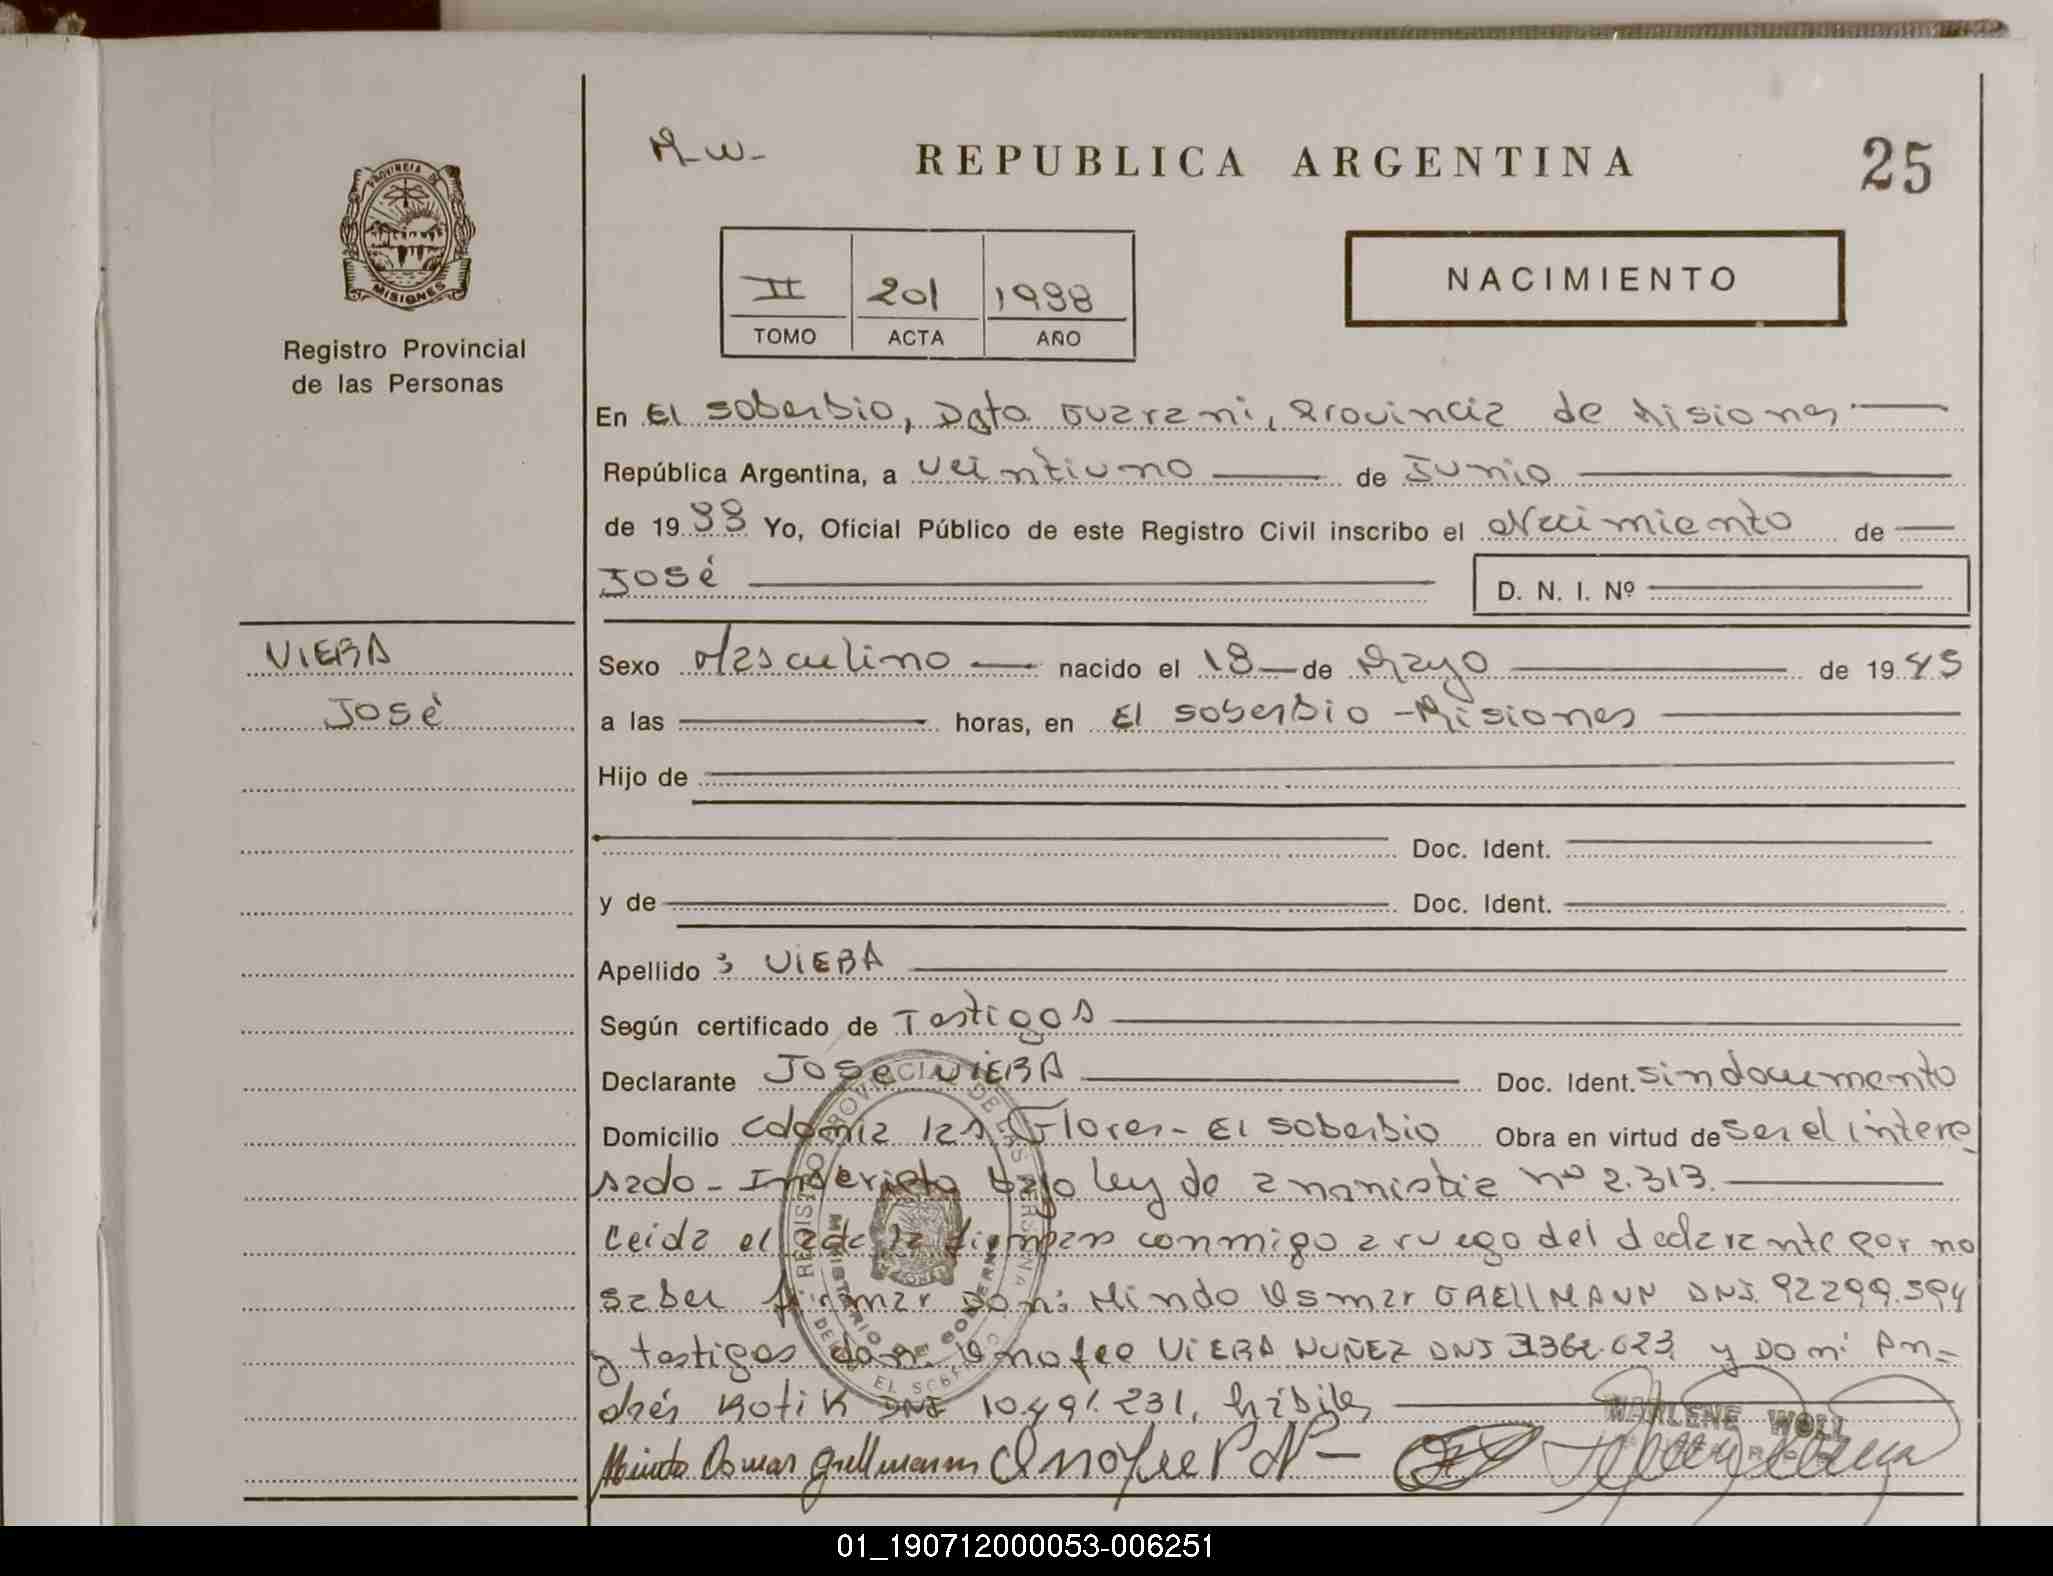 M-W-
REPUBLICA ARGENTINA
25
PROVINCIA DE
MISIONES
Registro Provincial
de las Personas
II 201 1998
TOMO ACTA AÑO
NACIMIENTO
En El Soberbio, Dpto Guarani, Provincia de Misiones
República Argentina, a veintiuno de Junio
de 1998 Yo, Oficial Público de este Registro Civil inscribo el Nacimiento de
José D. N. I. Nº
VIERA
José
Sexo Masculino nacido el 18 de Mayo de 1945
a las horas, en El Soberbio - Misiones
Hijo de
Doc. Ident.
y de Doc. Ident.
Apellido : VIERA
Según certificado de Testigos
Declarante José VIERA Doc. Ident. sin documento
Domicilio Colonia las Flores - El Soberbio Obra en virtud de ser el intere
sado - Inscripto bajo ley de amnistia nº 2.313.
Leida el acta la firman conmigo a ruego del declarante por no
saber firmar Don: Mindo Osmar GRELLMANN DNI. 92299.594
y testigos don: Onofre VIERA NUÑEZ DNI y Don: An-
drés Kotik DNI 10.491.231, hábiles
REGISTRO PROVINCIAL DE LAS PERSONAS
MINISTERIO DE GOBIERNO
MARLENE WOLL
Osmar Grellmann Onofre V N -
01_190712000053-006251